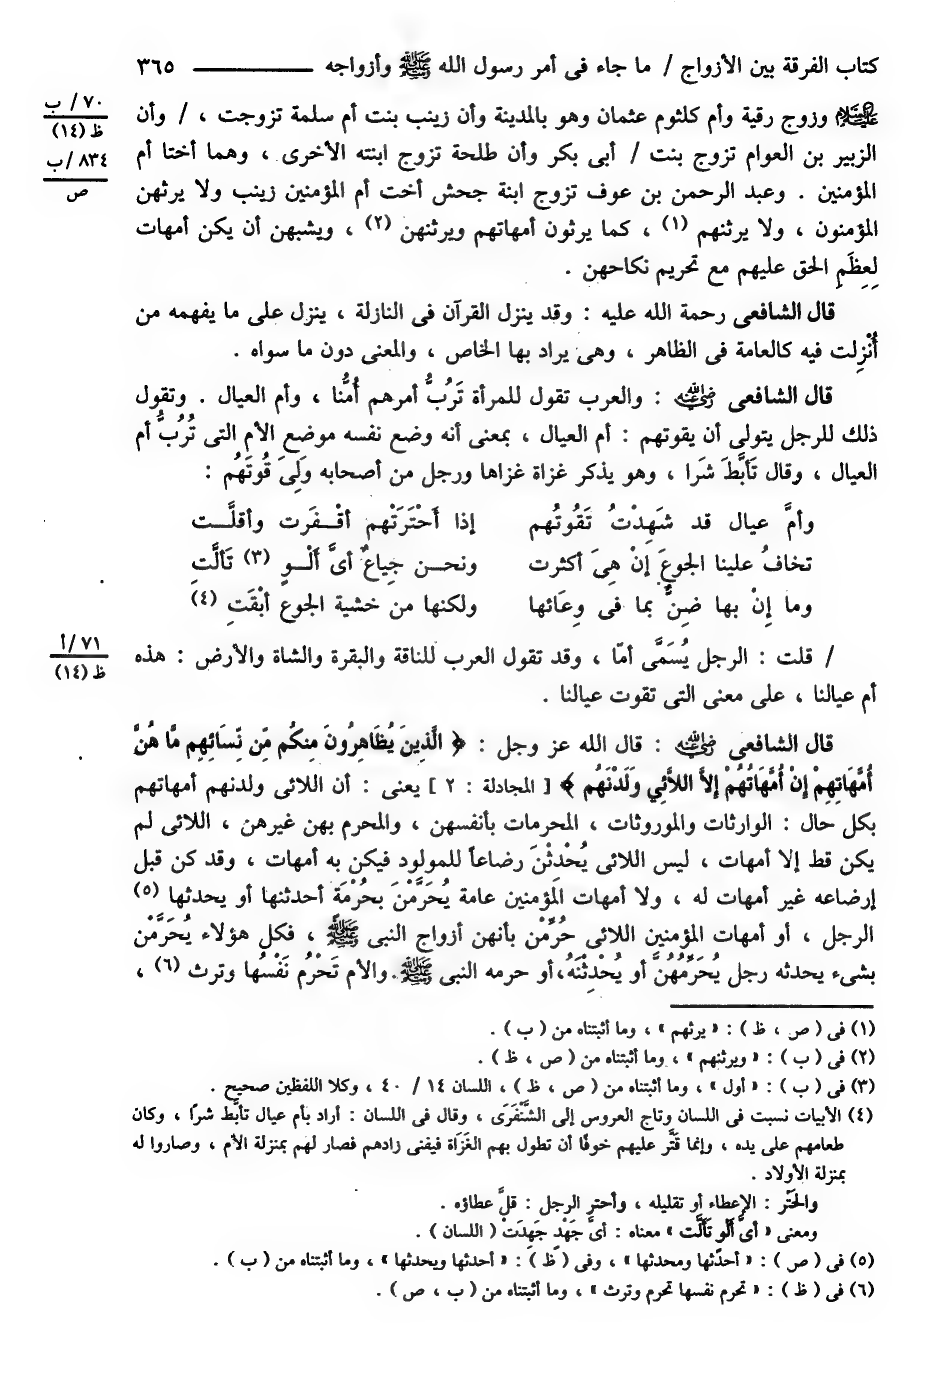 كتاب الفرقة بين الأزواج / ما جاء فى أمر رسول الله ﷺ وأزواجه ــــــــــ ٣٦٥
ﷺ وزوج رقية وأم كلثوم عثمان وهو بالمدينة وأن زينب بنت أم سلمة تزوجت ، / وأن
٧٠/ ب
ظ (١٤)
الزبير بن العوام تزوج بنت / أبى بكر وأن طلحة تزوج ابنته الأخرى ، وهما أختا أم
٨٣٤/ب
ص
المؤمنين . وعبد الرحمن بن عوف تزوج ابنة جحش أخت أم المؤمنين زينب ولا يرثهن
المؤمنون ، ولا يرثنهم (١) ، كما يرثون أمهاتهم ويرثنهن (٢) ، ويشبهن أن يكن أمهات
لِعِظَمِ الحق عليهم مع تحريم نكاحهن .
قال الشافعى رحمة الله عليه : وقد ينزل القرآن فى النازلة ، ينزل على ما يفهمه من
أُنْزِلت فيه كالعامة فى الظاهر ، وهى يراد بها الخاص ، والمعنى دون ما سواه .
قال الشافعى رضي الله عنه : والعرب تقول للمرأة تَرُبُّ أمرهم أُمُّنا ، وأم العيال . وتقول
ذلك للرجل يتولى أن يقوتهم : أم العيال ، بمعنى أنه وضع نفسه موضع الأم التى تَرُبُّ أم
العيال ، وقال تَأَبَّطَ شَرا ، وهو يذكر غزاة غزاها ورجل من أصحابه وَلِىَ قُوتَهُم :
وأمَّ عيال قد شَهِدْتُ تَقُوتُهم إذا أَحْتَرَتْهم أقْـفَرت وأقلَّـت
تخافُ علينا الجوعَ إنْ هِىَ أكثرت ونحـن جِياعٌ أىَّ أَلْـوٍ (٣) تَألَّتِ
وما إنْ بها ضِنٌّ بما فى وِعَائها ولكنها من خشية الجوع أبْقَتِ (٤)
/ قلت : الرجل يُسَمَّى أمّا ، وقد تقول العرب للناقة والبقرة والشاة والأرض : هذه
٧١/أ
ظ (١٤)
أم عيالنا ، على معنى التى تقوت عيالنا .
قال الشافعى رضي الله عنه : قال الله عز وجل : ﴿ الَّذِينَ يُظَاهِرُونَ مِنكُم مِّن نِّسَائِهِم مَّا هُنَّ
أُمَّهَاتِهِمْ إِنْ أُمَّهَاتُهُمْ إِلاَّ اللاَّئِي وَلَدْنَهُم ﴾ [ المجادلة : ٢ ] يعنى : أن اللائى ولدنهم أمهاتهم
بكل حال : الوارثات والموروثات ، المحرمات بأنفسهن ، والمحرم بهن غيرهن ، اللائى لم
يكن قط إلا أمهات ، ليس اللائى يُحْدِثْنَ رضاعاً للمولود فيكن به أمهات ، وقد كن قبل
إرضاعه غير أمهات له ، ولا أمهات المؤمنين عامة يُحَرَّمْنَ بحُرْمَة أحدثنها أو يحدثها (٥)
الرجل ، أو أمهات المؤمنين اللائى حُرِّمْن بأنهن أزواج النبى ﷺ ، فكل هؤلاء يُحَرَّمْن
بشىء يحدثه رجل يُحَرِّمُهُنَّ أو يُحْدِثْنَهُ، أو حرمه النبى ﷺ. والأم تَحْرُم نَفْسُها وترث (٦) ،
(١) فى ( ص ، ظ ) : « يرثهم » ، وما أثبتناه من ( ب ) .
(٢) فى ( ب ) : « ويرثنهم » ، وما أثبتناه من ( ص ، ظ ) .
(٣) فى ( ب ) : « أول » ، وما أثبتناه من ( ص ، ظ ) ، اللسان ١٤ / ٤٠ ، وكلا اللفظين صحيح .
(٤) الأبيات نسبت فى اللسان وتاج العروس إلى الشَّنْفَرَى ، وقال فى اللسان : أراد بأم عيال تأبَّط شرًا ، وكان
طعامهم على يده ، وإنما قَتَّر عليهم خوفًا أن تطول بهم الغَزَاة فيفنى زادهم فصار لهم بمنزلة الأم ، وصاروا له
بمنزلة الأولاد .
والحَتْر : الإعطاء أو تقليله ، وأحتر الرجل : قلَّ عطاؤه .
ومعنى « أىَّ أَلْوٍ تَألَّت » معناه : أىَّ جَهْدٍ جَهِدَتْ ( اللسان ) .
(٥) فى ( ص ) : « أحدّثها ومحدثها » ، وفى ( ظ ) : « أحدثها ويحدثها » ، وما أثبتناه من ( ب ) .
(٦) فى ( ظ ) : « تحرم نفسها تحرم وترث » ، وما أثبتناه من ( ب ، ص ) .